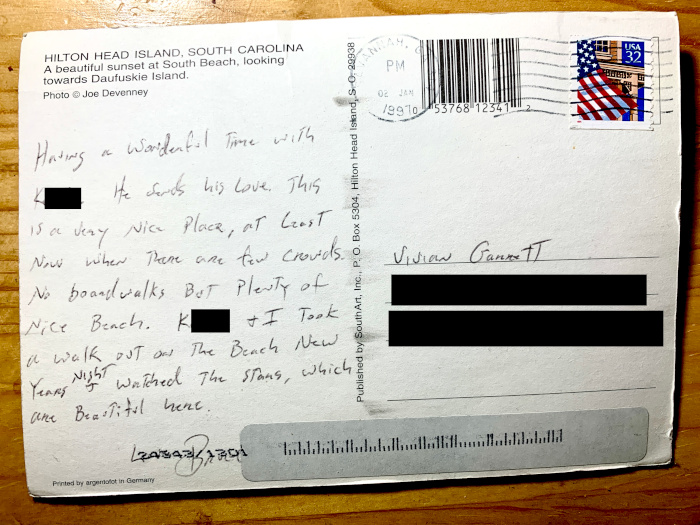 HILTON HEAD ISLAND, SOUTH CAROLINA
A beautiful sunset at South Beach, looking
towards Daufuskie Island.
Photo © Joe Devenney
Having a Wonderful Time with
K He sends his Love. This
is a very Nice Place, at Least
Now when There are few crowds.
No boardwalks But Plenty of
Nice Beach. K + I Took
a walk out on The Beach New
Years Night + watched The Stars, which
are Beautiful here.
24343/1301
Printed by argentofot in Germany
Published by SouthArt, Inc., P. O. Box 5304, Hilton Head Island, S. C. 29938
PM
02 JAN
1997
0 53768 12341 2
USA
32
Vivian Garrett